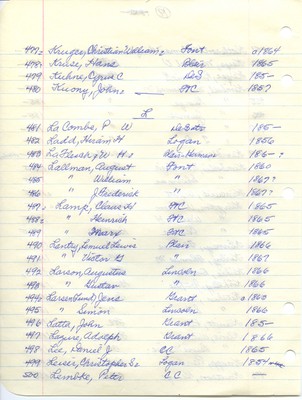 477. Kruger, Christian William Font a1864
478. Kruse, Hans Blair 1865
479 Kuhne, Cyrus C DeS 185-
480 Kuony, John FtC 1857
L
481 LaCombe, P W DeSoto 185-
482 Ladd, Hiram H Logan 1856
483 La Flesh, W H. 186-?
484 Lallman, August Font 1860
485 " William " 1867?
486 " J Frederick " 1867?
487. Lamp, Claus H FtC 1865
488. " Heinrich FtC 1865
489 " Marx FtC 1865
490 Lantry, Lemuel Lewis Blair 1866
491 " Victor G " 1867
492 Larson, Augustus Lincoln 1866
493 " Gustav " 1866
494 Larsen, Jens Grant a 1865
495 " Simon Lincoln 1866
496 Latta, John Grant 185-
497 Adolph Grant 1866
498 Lee, Daniel J CC 1865
499 Leiser, Christopher S. Logan 1854
500 Lembke, Peter C.C. —